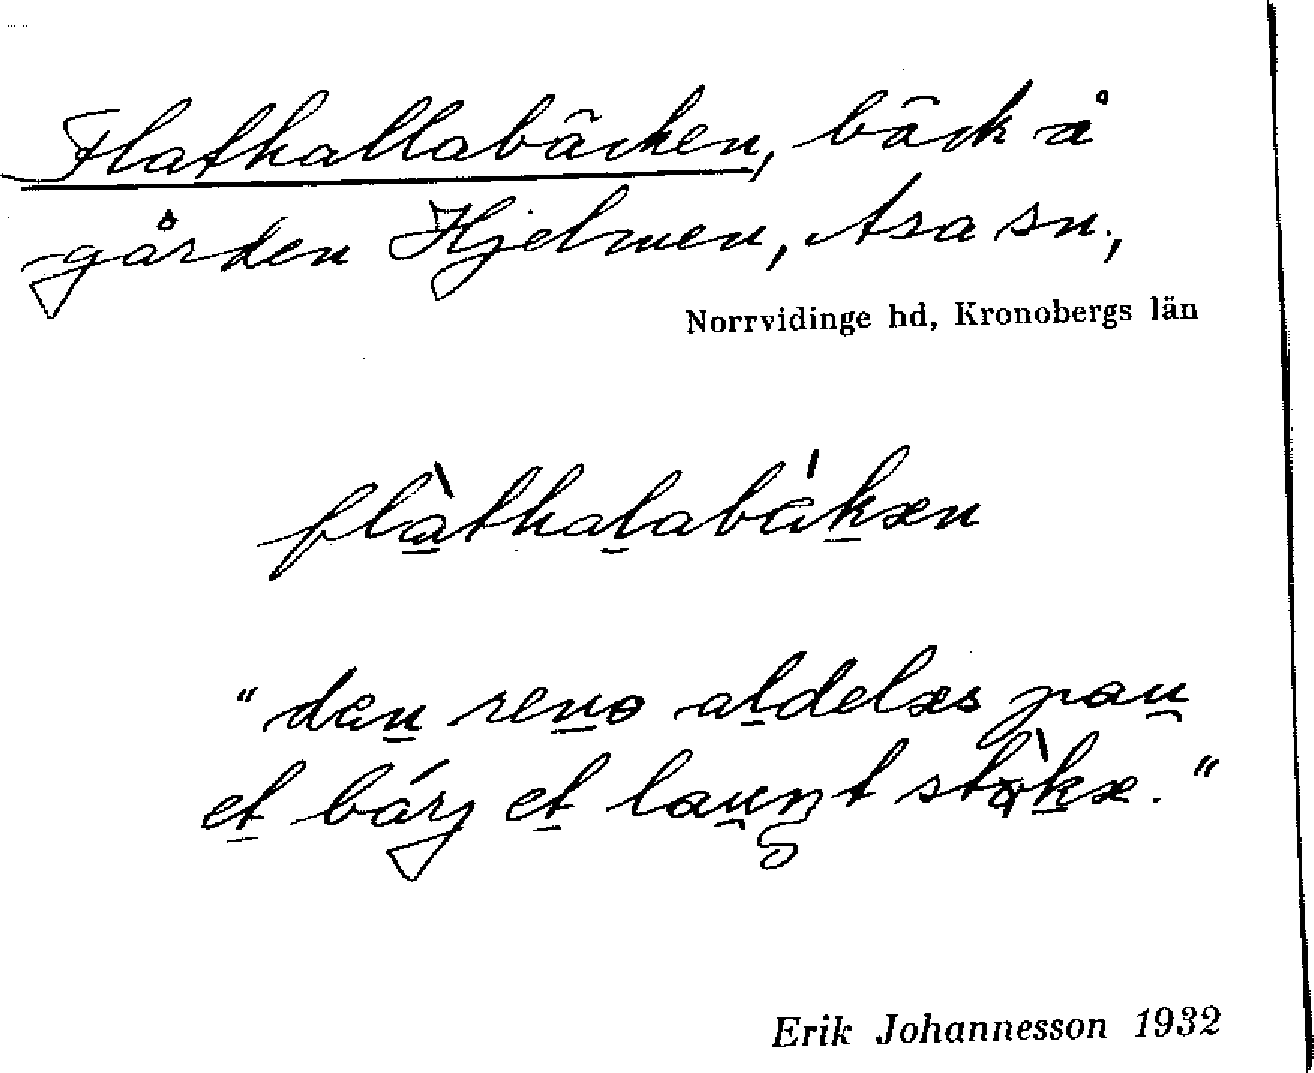 Flathallabäcken, bäck å
gården Hjelmen, Asa sn.,
Norrvidinge hd, Kronobergs län
flàt̲hal̲abák̲æn
“den̲ ren̲ɷ al̲delæs pau̯
et̲ bárj et̲ lau̯ŋt stò̲k̲æ.”
Erik Johannesson 1932